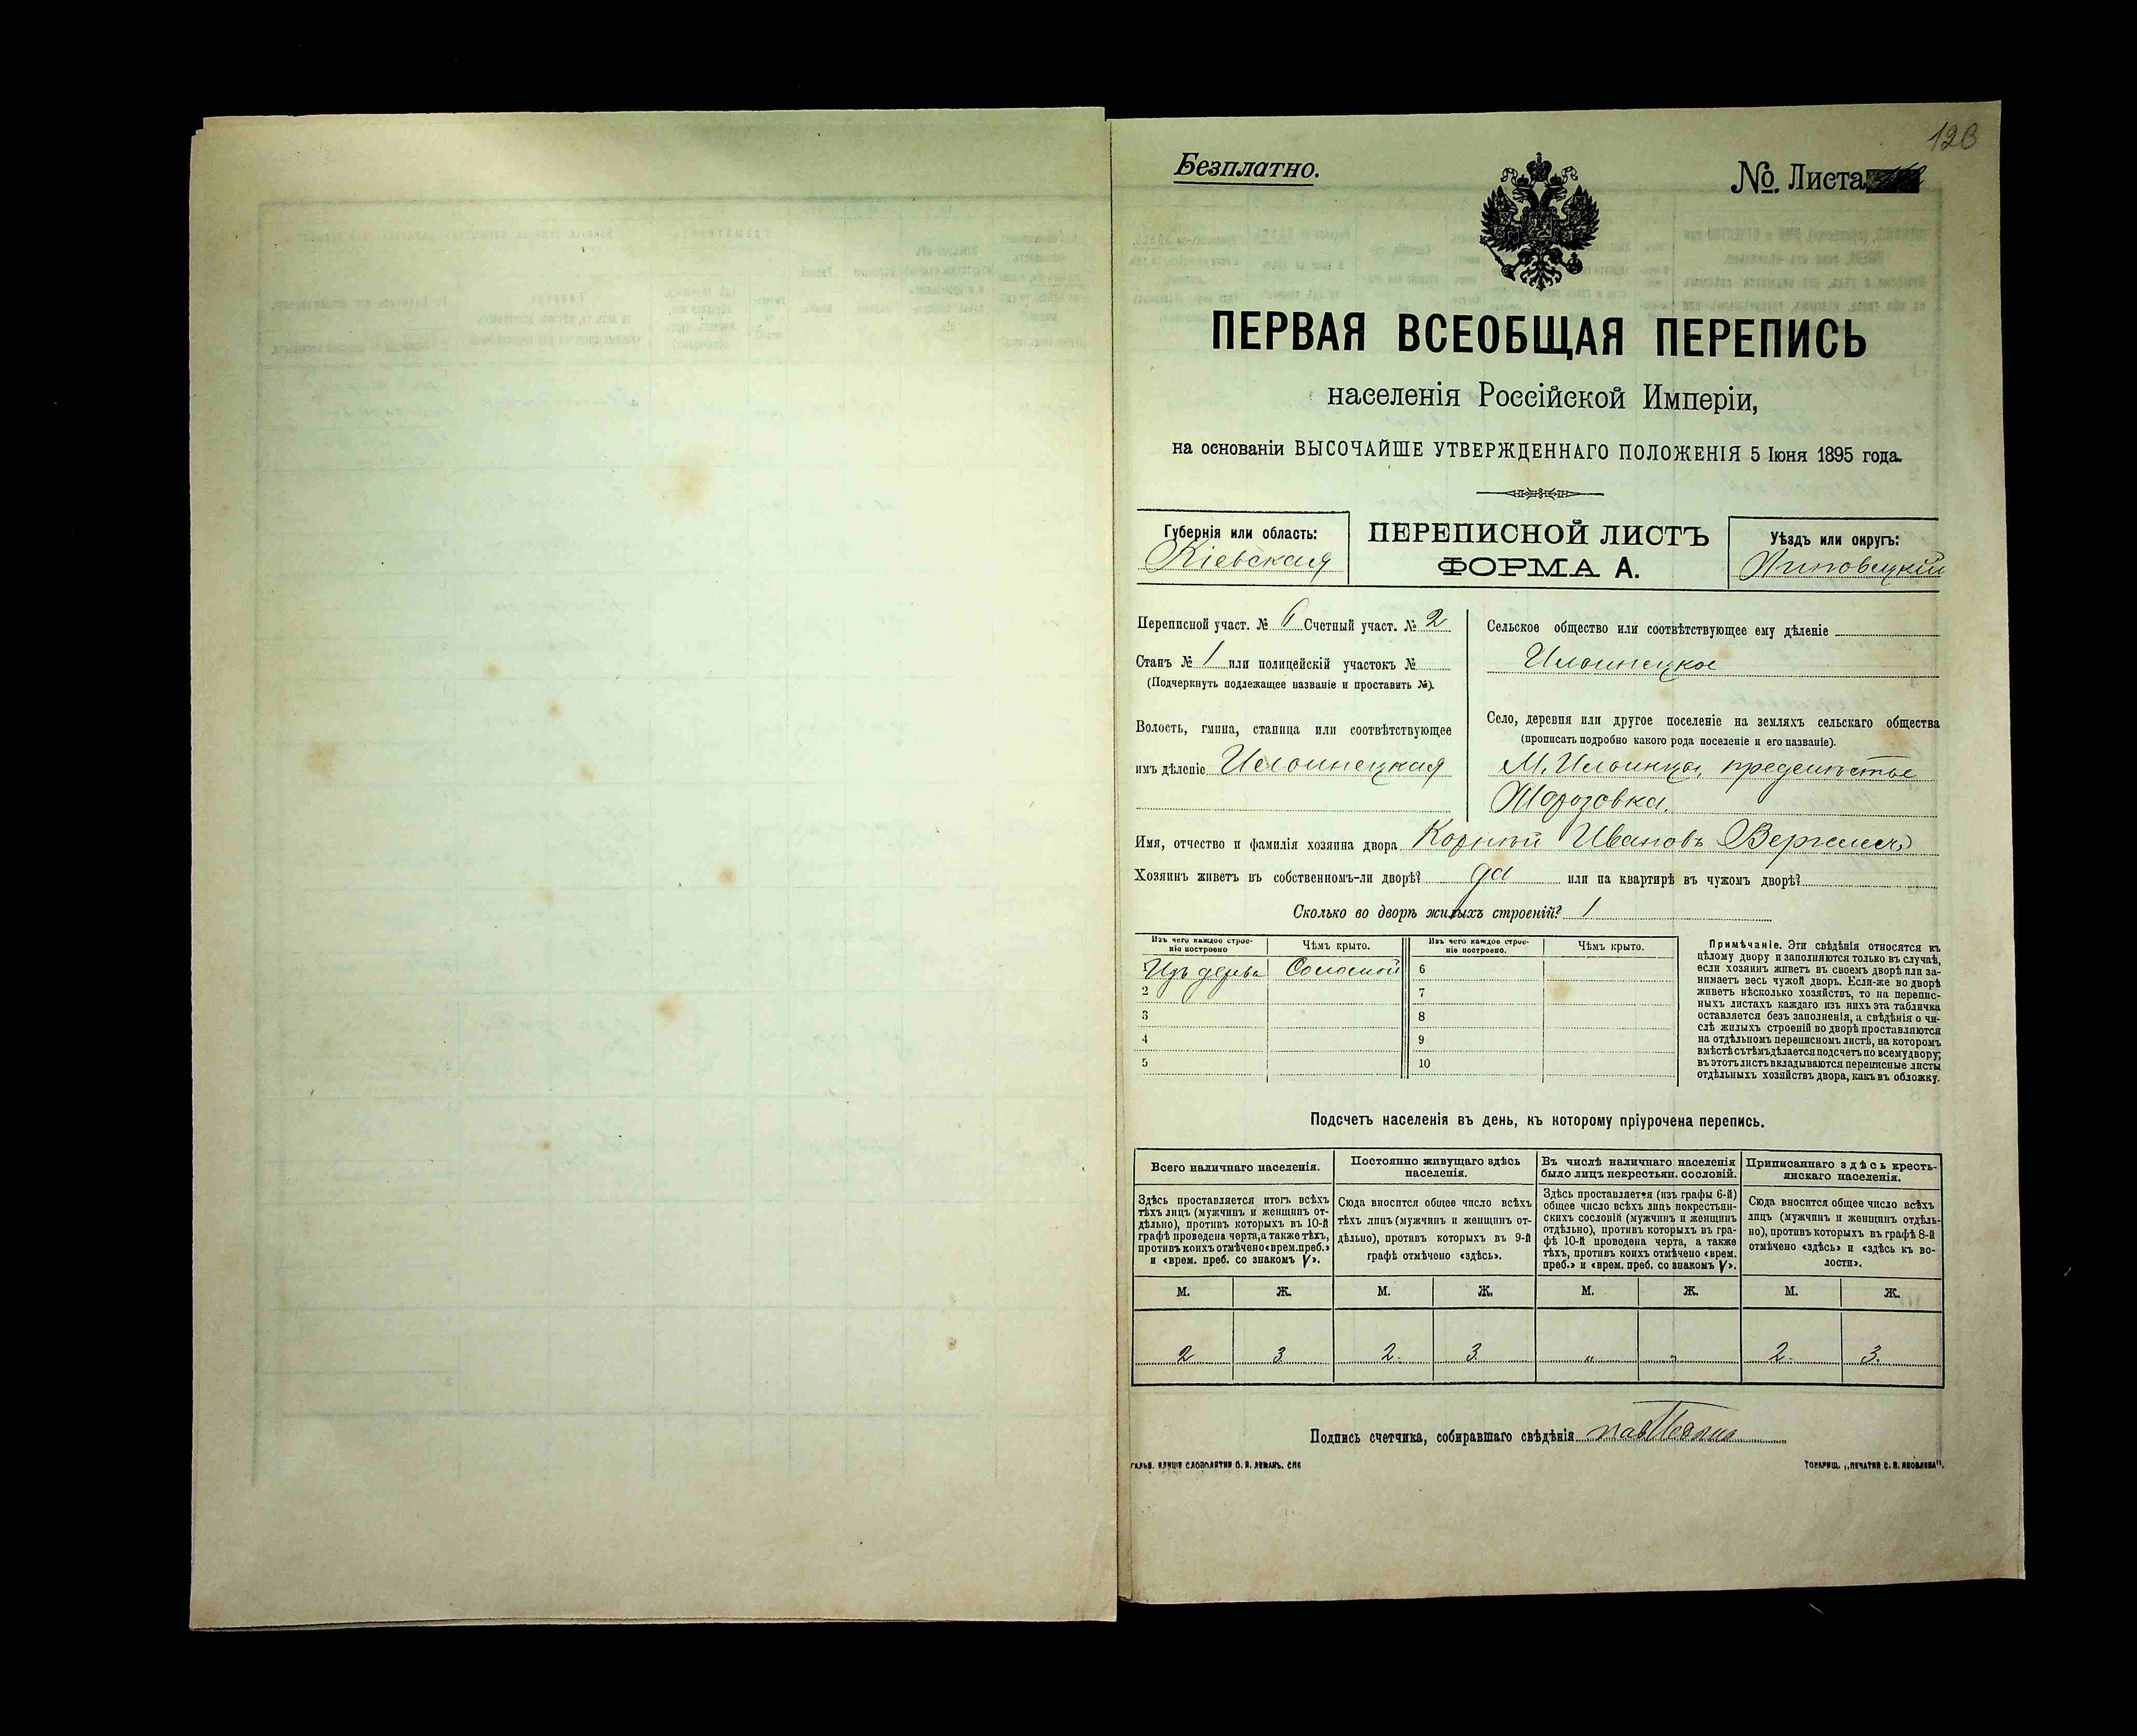 123
Безплатно.
№. Листа
ПЕРВАЯ ВСЕОБЩАЯ ПЕРЕПИСЬ
населенія Россійской Имперіи,
на основаніи ВЫСОЧАЙШЕ УТВЕРЖДЕННАГО ПОЛОЖЕНІЯ 5 Іюня 1895 года.
Губернія или область:
Кіевская
ПЕРЕПИСНОЙ ЛИСТЪ
ФОРМА А.
Уѣздъ или округъ:
Липовецкій
Переписной участ. № 6 Счетный участ. № 2
Станъ № 1 или полицейскій участокъ №
(Подчеркнуть подлежащее названіе и проставить №).
Волость, гмина, станица или соотвѣтствующее
имъ дѣленіе Ильинецкая
Сельское общество или соотвѣтствующее ему дѣленіе
Ильинецкое
Село, деревня или другое поселеніе на земляхъ сельскаго общества
(прописать подробно какого рода поселеніе и его названіе).
М. Ильинцы, предмѣстье
Морозовка.
Имя, отчество и фамилія хозяина двора Корній Ивановъ
Хозяинъ живетъ въ собственномъ-ли дворѣ? да или на квартирѣ въ чужомъ дворѣ?
Сколько во дворѣ жилыхъ строеній? 1
Изъ чего каждое строе-
ніе построено
Чѣмъ крыто.
Изъ чего каждое строе-
ніе построено.
Чѣмъ крыто.
1 Изъ дерева Соломой 6
2 7
3 8
4 9
5 10
Примѣчаніе. Эти свѣдѣнія относятся къ
цѣлому двору и заполняются только въ случаѣ,
если хозяинъ живетъ въ своемъ дворѣ или за-
нимаетъ весь чужой дворъ. Если-же во дворѣ
живетъ нѣсколько хозяйствъ, то на перепис-
ныхъ листахъ каждаго изъ нихъ эта табличка
оставляется безъ заполненія, а свѣдѣнія о чи-
слѣ жилыхъ строеній во дворѣ проставляются
на отдѣльномъ переписномъ листѣ, на которомъ
вмѣстѣ съ тѣмъ дѣлается подсчетъ по всему двору;
въ этотъ листъ вкладываются переписные листы
отдѣльныхъ хозяйствъ двора, какъ въ обложку.
Подсчетъ населенія въ день, къ которому пріурочена перепись.
Всего наличнаго населенія.
Здѣсь проставляется итогъ всѣхъ
тѣхъ лицъ (мужчинъ и женщинъ от-
дѣльно), противъ которыхъ въ 10-й
графѣ проведена черта, а также тѣхъ,
противъ коихъ отмѣчено «врем. преб.»
и «врем. преб. со знакомъ V».
Постоянно живущаго здѣсь
населенія.
Сюда вносится общее число всѣхъ
тѣхъ лицъ (мужчинъ и женщинъ от-
дѣльно), противъ которыхъ въ 9-й
графѣ отмѣчено «здѣсь».
Въ числѣ наличнаго населенія
было лицъ некрестьян. сословій.
Здѣсь проставляется (изъ графы 6-й)
общее число всѣхъ лицъ некрестьян-
скихъ сословій (мужчинъ и женщинъ
отдѣльно), противъ которыхъ въ гра-
фѣ 10-й проведена черта, а также
тѣхъ, противъ коихъ отмѣчено «врем.
преб.» и «врем. преб. со знакомъ V».
Приписаннаго здѣсь кресть-
янскаго населенія.
Сюда вносится общее число всѣхъ
лицъ (мужчинъ и женщинъ отдѣль-
но), противъ которыхъ въ графѣ 8-й
отмѣчено «здѣсь» и «здѣсь къ во-
лости».
М. Ж. М. Ж. М. Ж. М. Ж.
2 3 2. 3. „ „ 2. 3.
Подпись счетчика, собиравшаго свѣдѣнія
ТОВАРИЩ. „ПЕЧАТНЯ С. П. ЯКОВЛЕВА".